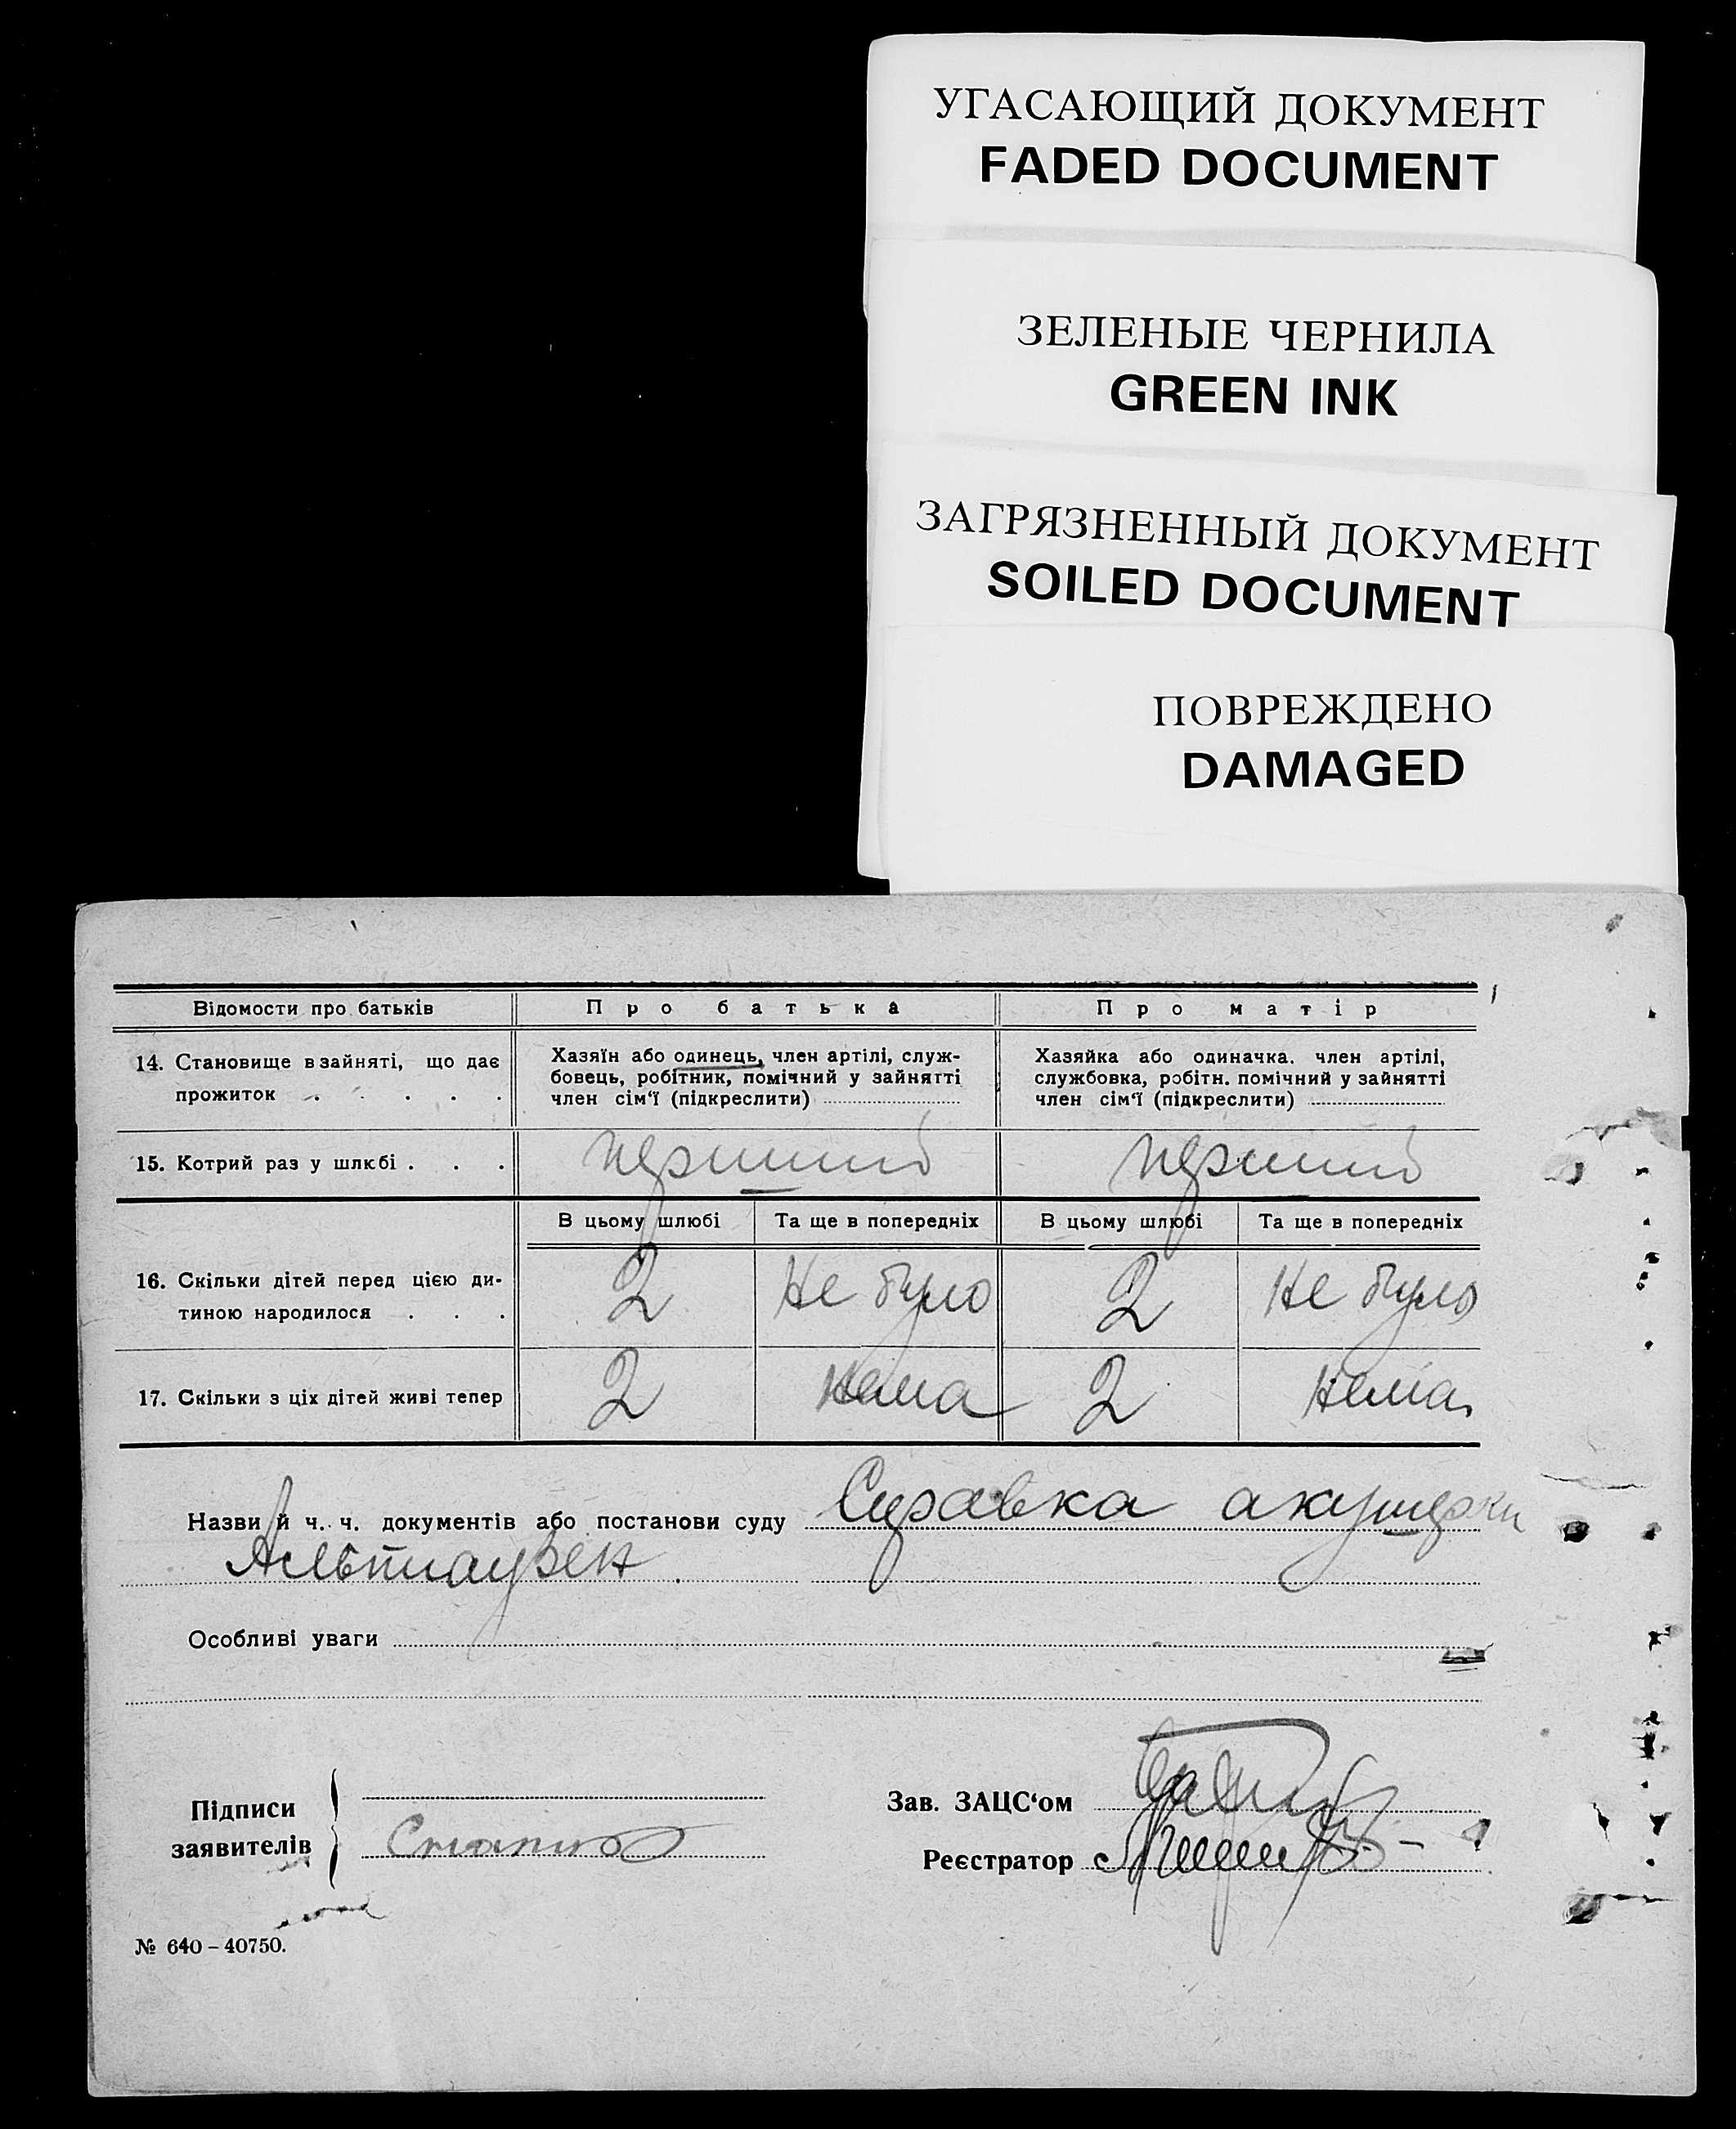 УГАСАЮЩИЙ ДОКУМЕНТ
FADED DOCUMENT
ЗЕЛЕНЫЕ ЧЕРНИЛА
GREEN INK
ЗАГРЯЗНЕННЫЙ ДОКУМЕНТ
SOILED DOCUMENT
ПОВРЕЖДЕНО
DAMAGED
Відомости про батьків Про батька Про матір
14. Становище в зайняті, що дає
прожиток . . . . .
Хазяїн або одинець, член артілі, служ-
бовець, робітник, помічний у зайнятті
член сім'ї (підкреслити)
Хазяйка або одиначка. член артілі,
службовка, робітн. помічний у зайнятті
член сім'ї (підкреслити)
15. Котрий раз у шлюбі . . . перший перший
В цьому шлюбі Та ще в попередніх В цьому шлюбі Та ще в попередніх
16. Скільки дітей перед цією ди-
тиною народилося . . . 2 не було 2 не було
17. Скільки з ціх дітей живі тепер 2 нема 2 нема
Назви й ч. ч. документів або постанови суду Справка акушерки
Особливі уваги
Підписи
заявителів
Зав. ЗАЦС'ом
Реєстратор
№ 640 – 40750.